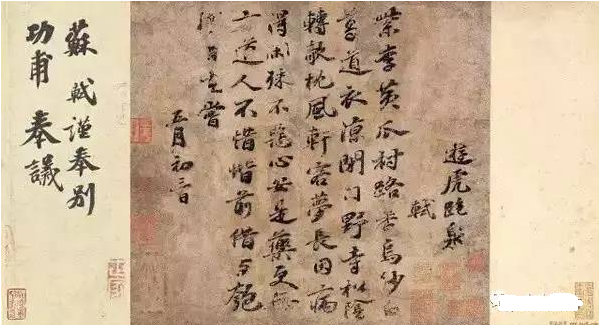 遊虎跑泉
軾
紫李黃瓜村路香烏紗白
葛道衣涼閉門野寺松陰
轉欹枕風軒客夢長因病
得閑殊不惡心安是藥更無
方道人不惜階前借與匏
樽自在嘗
五月初
蘇軾謹奉別
功甫奉議